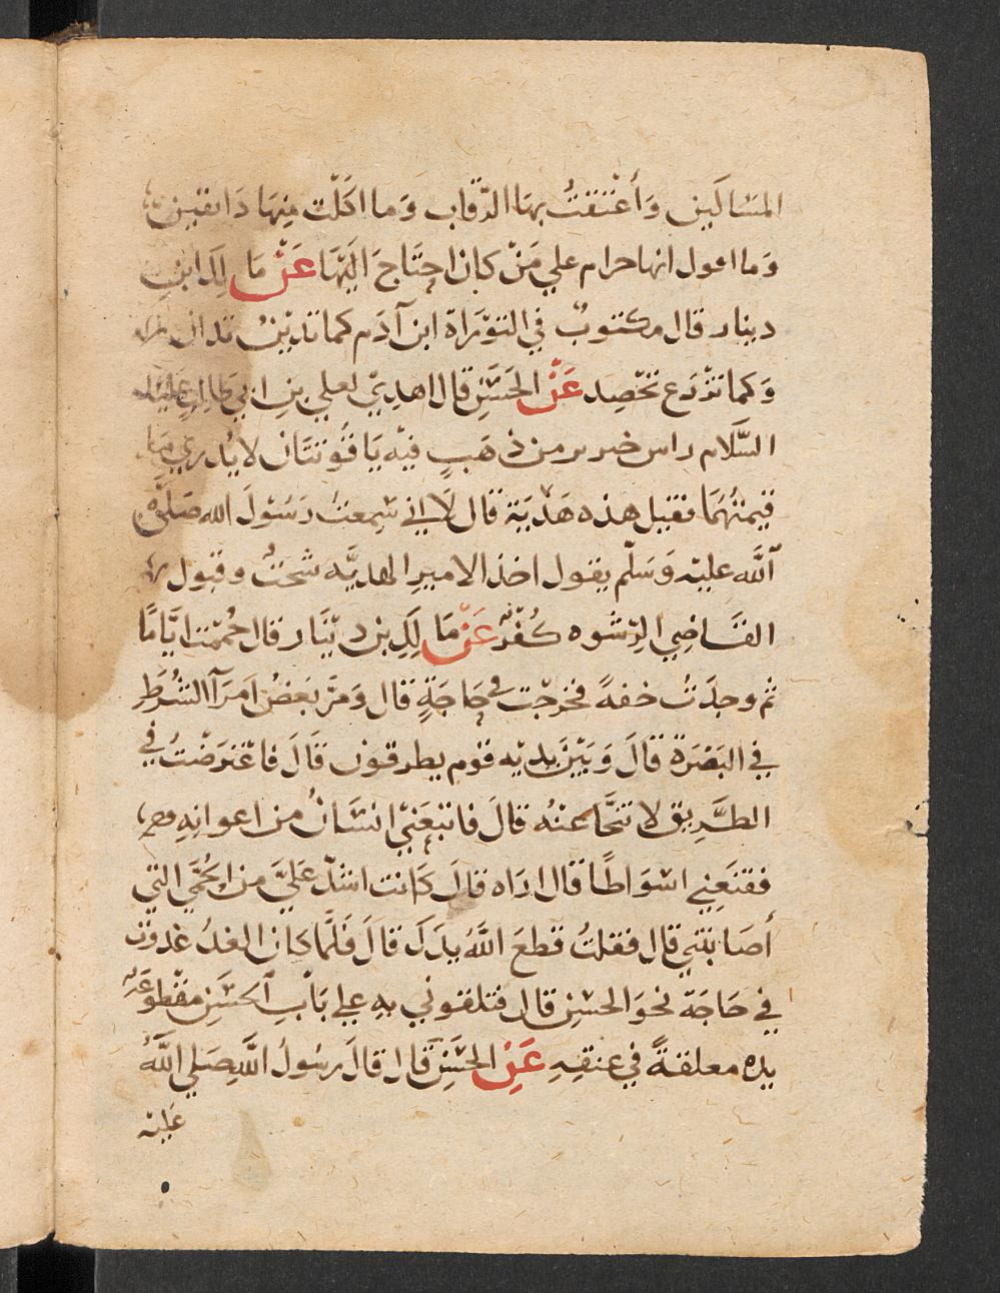 المسَاكَين وَأعْتَقتُ بهَا الرّقاب وَما اكَلْت مِنهَا دَانقين
وَما اعول انها حرام علي مَنْ كان احتَاجَ الَيْهَا عَنْ مَا لِكَ ابن
دينار قال مكتوبٌ في التوْرَاة ابن آدَم كما تدينْ تدان
وَكما تزْرَع تحْصِد عَنْ الحَسَنِ قال اهدِيْ لعلي بنِ ابي طالب عليه
السَّلام راس من ذهَبٍ فيْه يَاقُوتتَان لا يُدرَي مَا
قيمتُهُمَا فقيل هذه هَدْيَة قال لَا اني سَمِعتُ رَسُوْلَ الله صَلي
اللَّه عليْه وَسَلّم يقول اخذ الامير الهديَّه سُحتٌ وقبول
القَاضِي الرِّشوه كُفْرٌ عَنْ مَا لِكِ بن ديْنَار قال حُمْمت ايَّامًا
ثم وجدَتُ خفةً فخرجْت في حَاجَةٍ قال وَمرَّ بَعَضُ امَرَآ الشُرَط
في البَصْرَة قالَ وَبَيْنَ يديْه قوْم يطرقون قَالَ فاعْترَضْتُ في
الطَّرِيق لا تنحَّا عنْه قالَ فاتبعَنِيْ انسَانٌ من اعوانِهِ
فقنعَنِي اسْوَاطًا قال ارَاه قالَ كَانت اشدّ عَليَّ من الحُمَّي التي
أصَابتنِي قال فقلتُ قطعَ اللَّهُ يدَكَ قالَ فَلَّما كان الغدُ غدوْت
في حَاجَة نحْوَ الحسَنِ قال فتلقوني بهِ علي بَابِ الحسَنِ مقطوعَه
يدُه معلقةً في عنقهِ عَنِ الحسَنِ قال قالَ رسُولُ اللَّهِ صَلي اللَّهُ
عَليْه